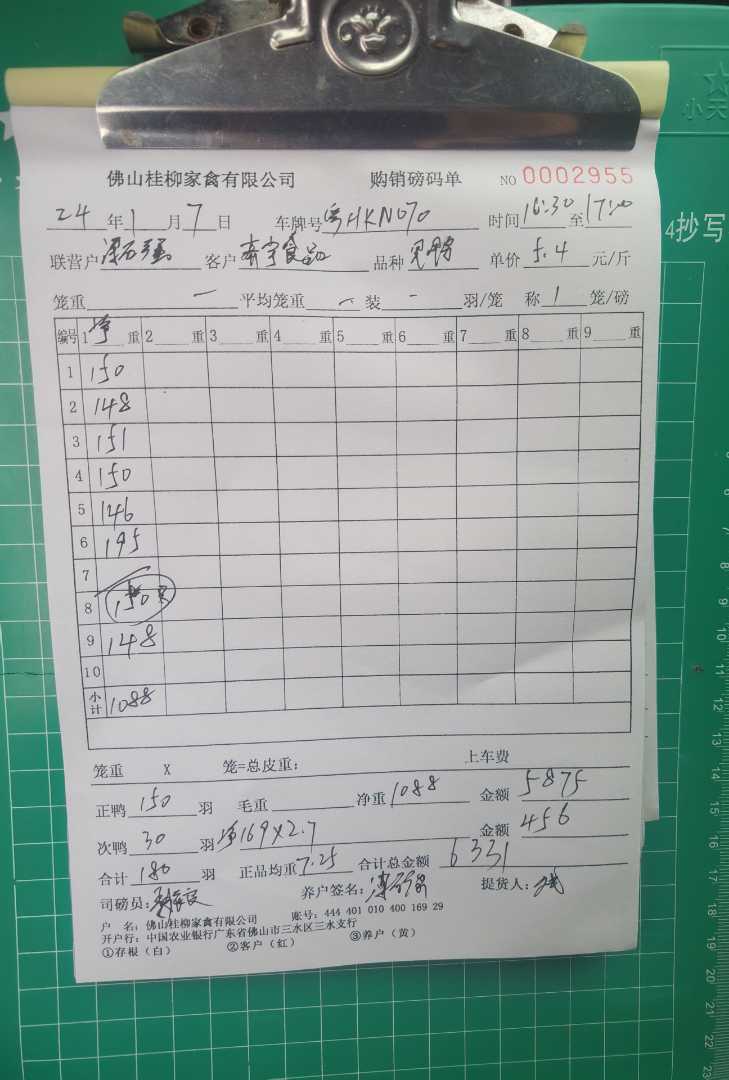 小天
4抄写
佛山桂柳家禽有限公司 购销磅码单 NO 0002955
24 年 1 月 7 日 车牌号 粤HKN070 时间 16:30 至 17:00
联营户 客户 食品 品种 单价 5.4 元/斤
笼重 一 平均笼重 一 装 - 羽/笼 称 1 笼/磅
编号 1 净 重 2 重 3 重 4 重 5 重 6 重 7 重 8 重 9 重
1 150
2 148
3 151
4 150
5 146
6 195
7
8 150
9 148
10
小计 1088
笼重 X 笼=总皮重: 上车费
正鸭 150 羽 毛重 净重 1088 金额 5875
次鸭 30 羽 净169X2.7 金额 456
合计 180 羽 正品均重 7.25 合计总金额 6331
司磅员: 养户签名: 提货人:
户 名: 佛山桂柳家禽有限公司 账号: 444 401 010 400 169 29
开户行: 中国农业银行广东省佛山市三水区三水支行
①存根(白) ②客户(红) ③养户(黄)
8
9
10
11
12
13
14
15
16
17
18
19
20
21
22
23